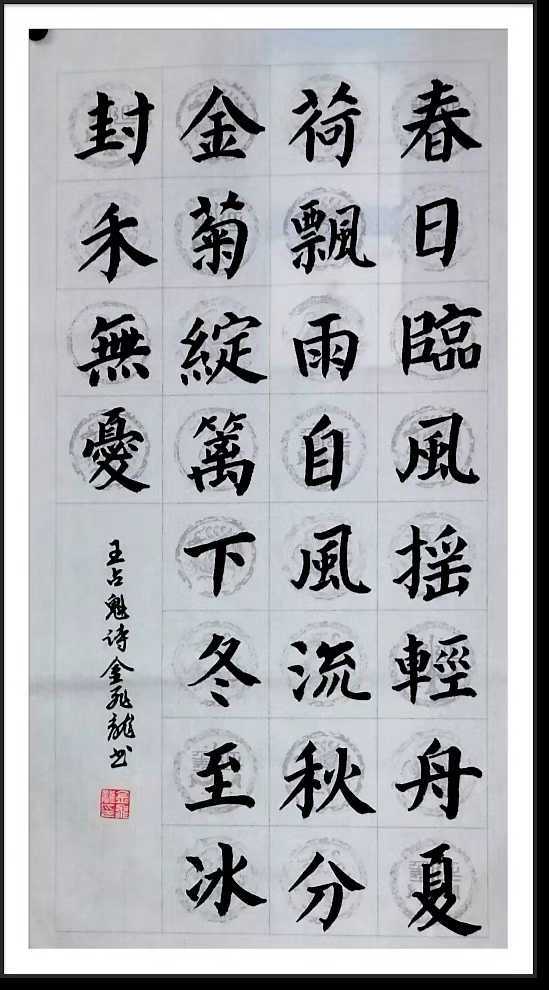 春日臨風摇輕舟夏
荷飄雨自風流秋分
金菊綻篱下冬至冰
封禾無憂
王占魁诗金飛龍书